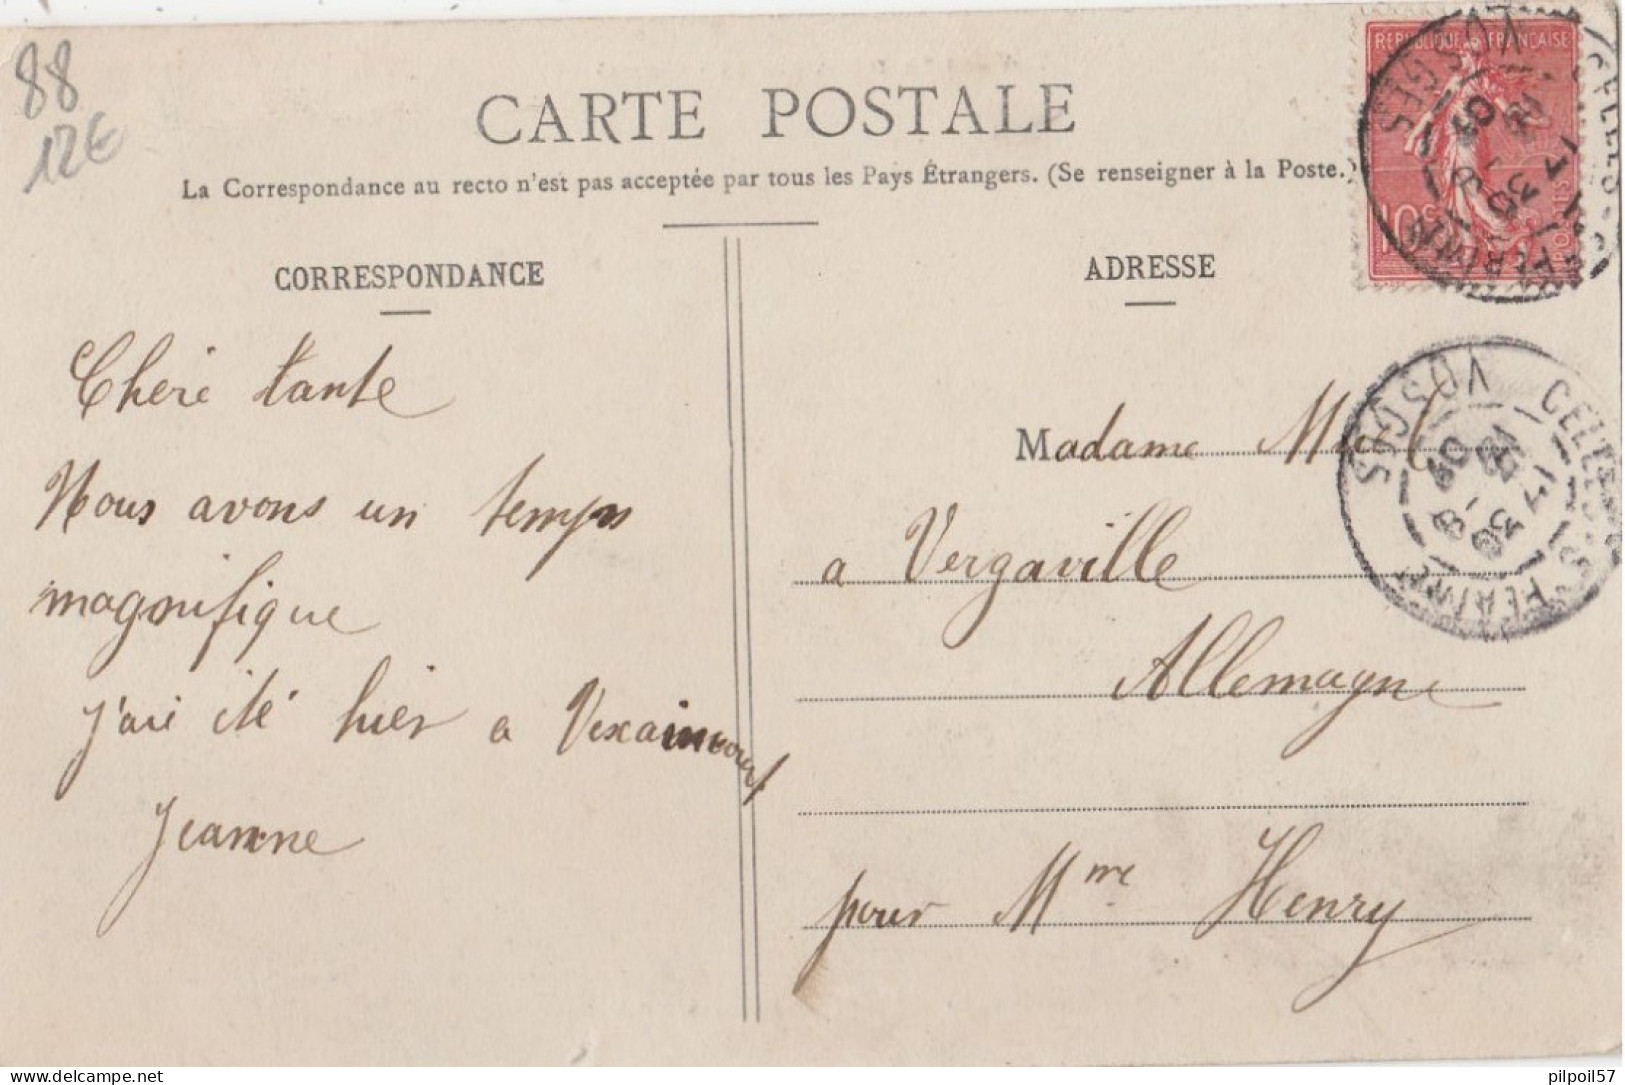 88
12€
CARTE POSTALE
La Correspondance au recto n'est pas acceptée par tous les Pays Étrangers. (Se renseigner à la Poste.)
REPUBLIQUE FRANÇAISE
10c
POSTES
VOSGES
CORRESPONDANCE
Cheré tante
Nous avons un temps
magnifique
j'ai été hier a Vexaincourt
Jeanne
ADRESSE
Madame
a Vergaville
Allemagne
pour Mme Henry
VOSGES
09
pilpoil57